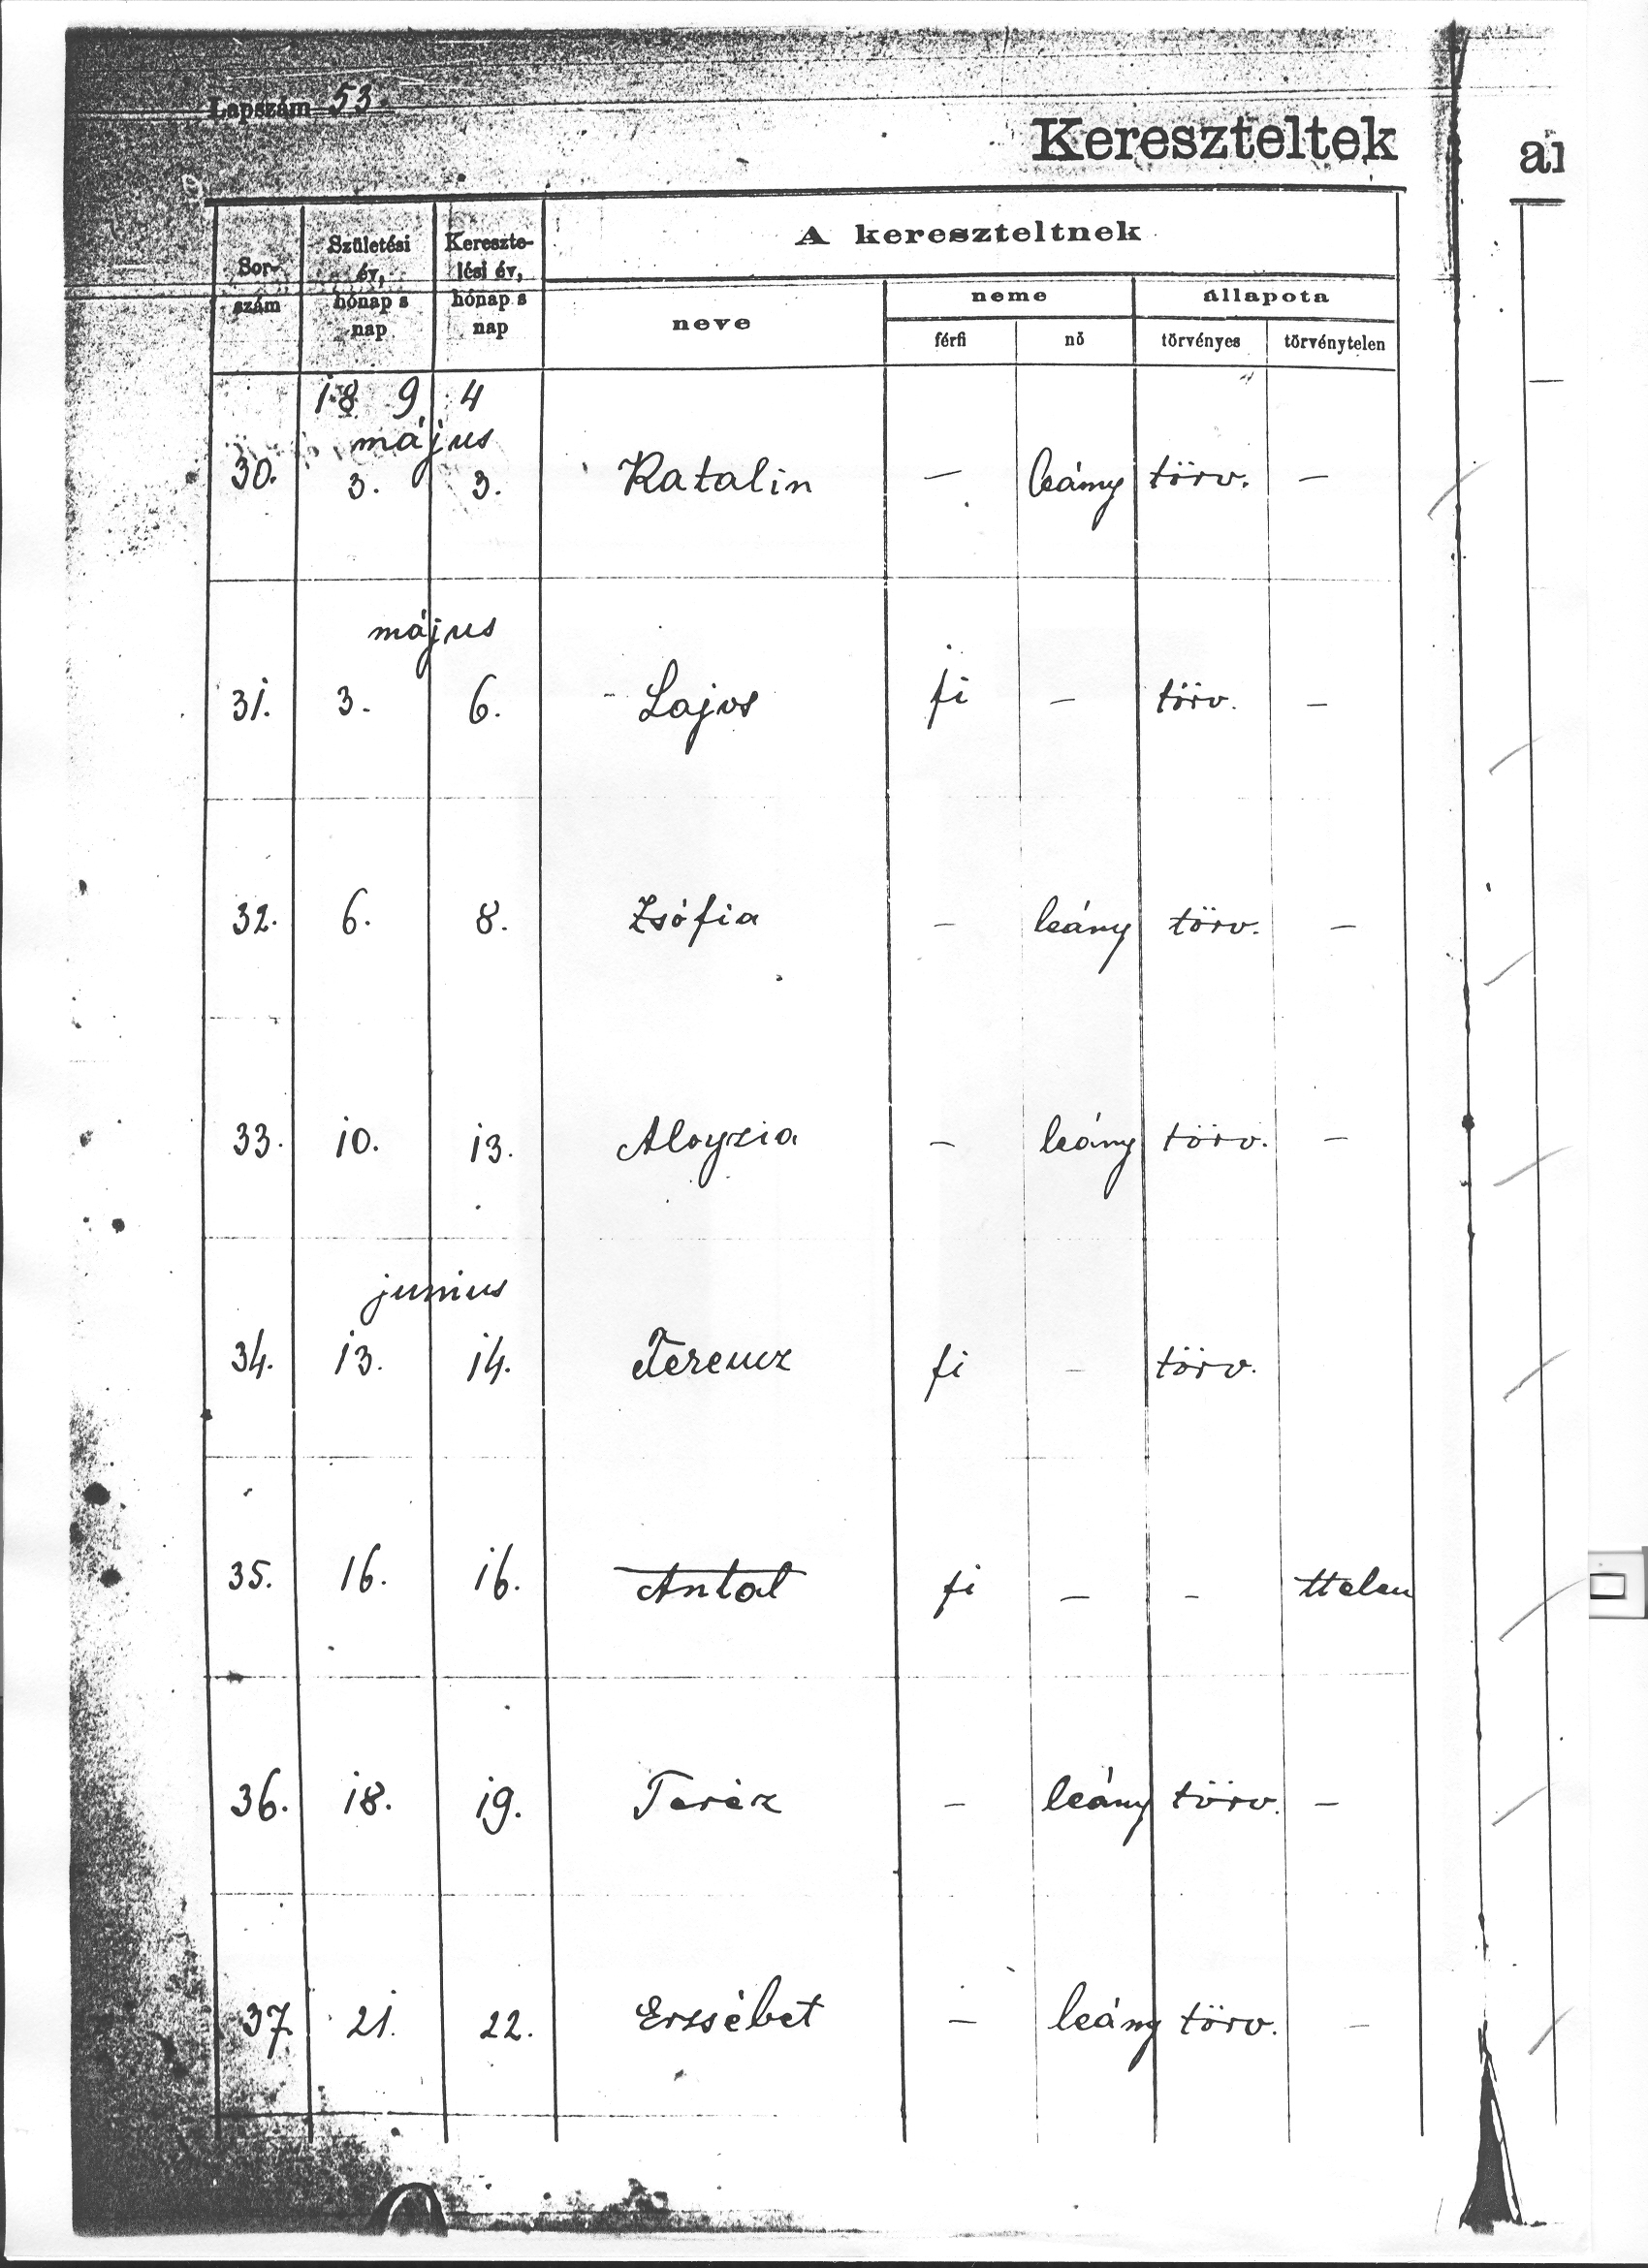 Lapszám 53.
Kereszteltek
al
Sor-
szám
Születési
év,
hónap s
nap
Kereszte-
lési év,
hónap s
nap
A kereszteltnek
neve
neme
állapota
férfi
nő
törvényes
törvénytelen
18 9 4
május
30. 3. 3. Katalin — leány törv. —
május
31. 3. 6. Lajos fi — törv. —
32. 6. 8. Zsófia — leány törv. —
33. 10. 13. Aloyzia — leány törv. —
junius
34. 13. 14. Ferencz fi — törv.
35. 16. 16. Antal fi — - ttelen
36. 18. 19. Teréz — leány törv. —
37. 21. 22. Erzsébet — leány törv. —